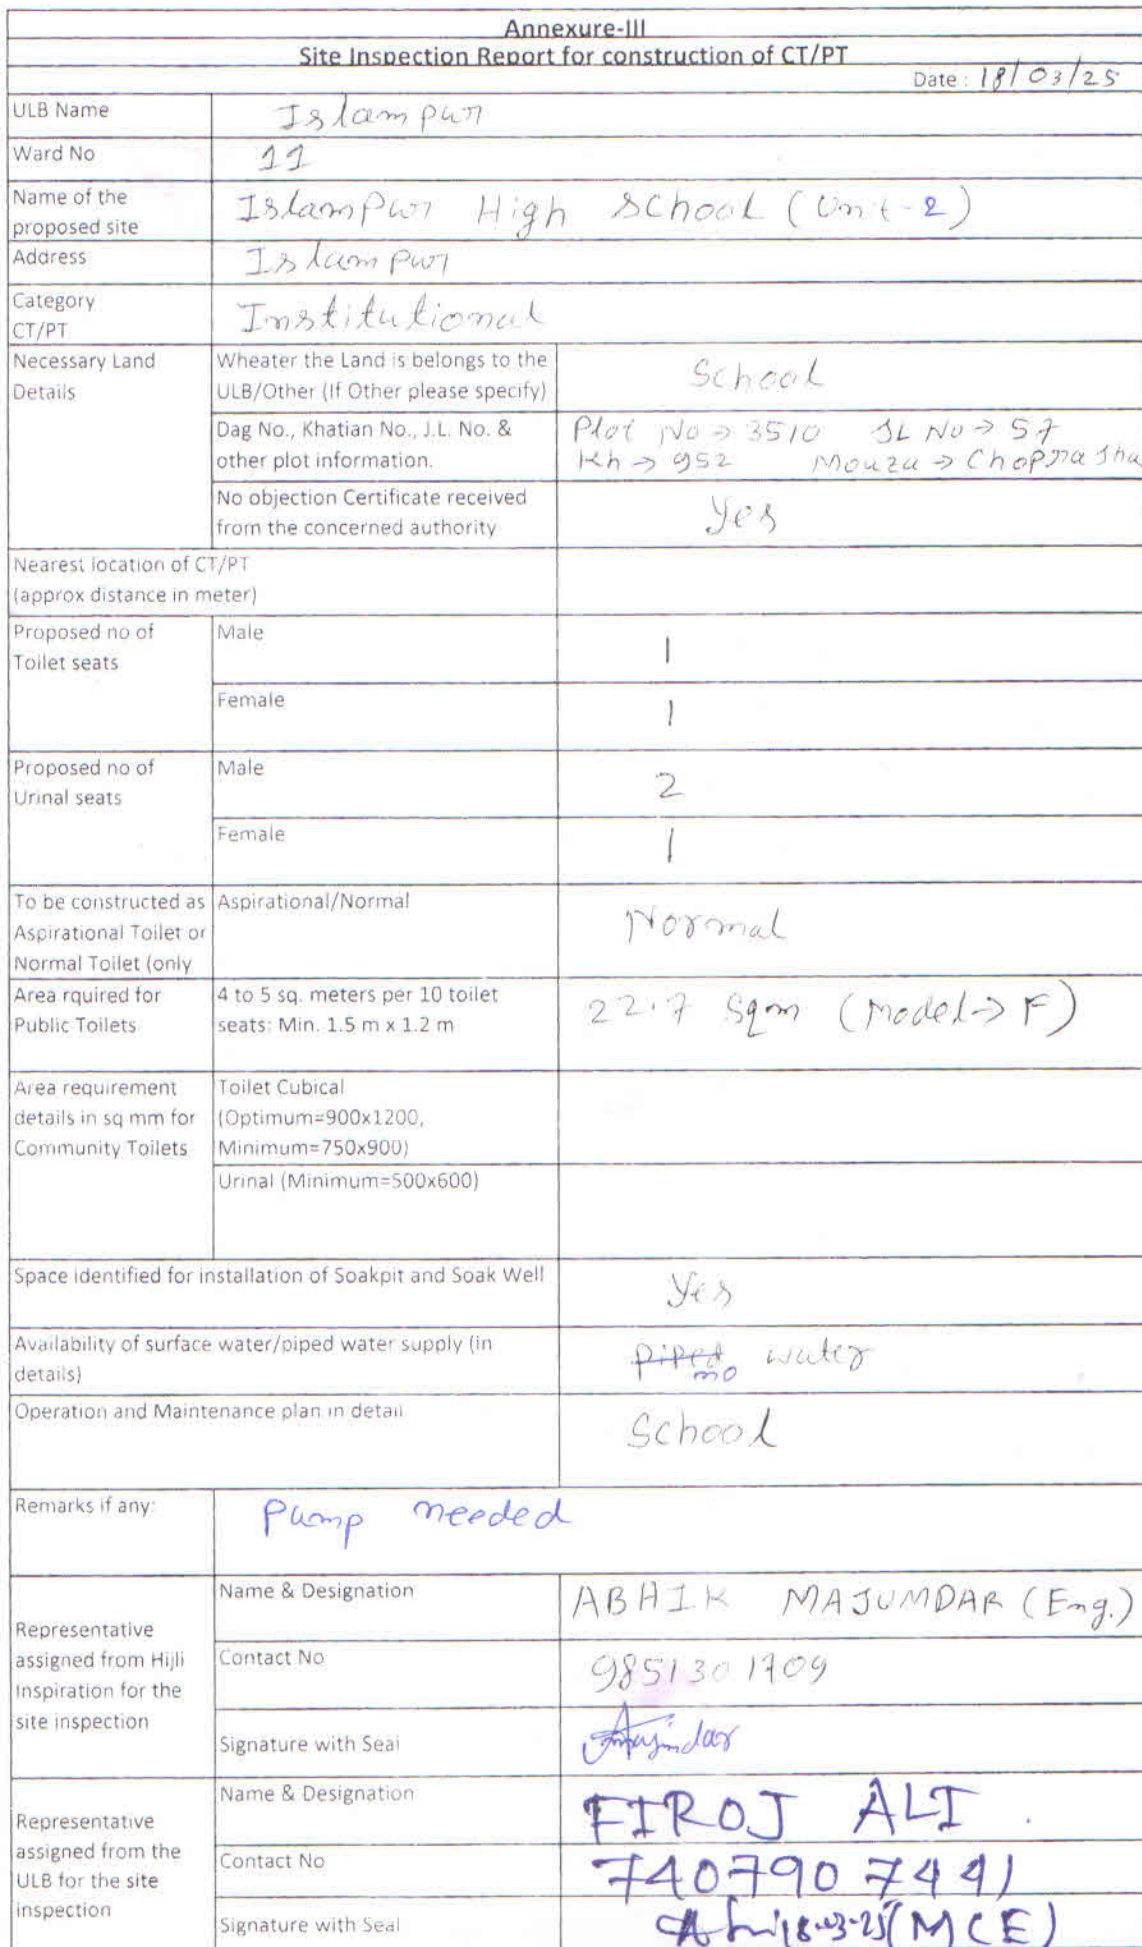 Annexure-III
Site Inspection Report for construction of CT/PT
Date : 18/03/25
ULB Name Islampur
Ward No 11
Name of the
proposed site
Islampur High School (Unit-2)
Address Islampur
Category
CT/PT
Institutional
Necessary Land
Details
Wheater the Land is belongs to the
ULB/Other (If Other please specify)
School
Dag No., Khatian No., J.L. No. &
other plot information.
Plot No → 3510 JL No → 57
Kh → 952 Mouza →
No objection Certificate received
from the concerned authority
Yes
Nearest location of CT/PT
(approx distance in meter)
Proposed no of
Toilet seats
Male 1
Female 1
Proposed no of
Urinal seats
Male 2
Female 1
To be constructed as
Aspirational Toilet or
Normal Toilet (only
Aspirational/Normal
Normal
Area rquired for
Public Toilets
4 to 5 sq. meters per 10 toilet
seats: Min. 1.5 m x 1.2 m
22.7 Sqm (Model → F)
Area requirement
details in sq mm for
Community Toilets
Toilet Cubical
(Optimum=900x1200,
Minimum=750x900)
Urinal (Minimum=500x600)
Space identified for installation of Soakpit and Soak Well Yes
Availability of surface water/piped water supply (in
details)
piped water
no
Operation and Maintenance plan in detail School
Remarks if any: Pump needed
Representative
assigned from Hijli
Inspiration for the
site inspection
Name & Designation ABHIK MAJUMDAR (Eng.)
Contact No 9851301709
Signature with Seal
Representative
assigned from the
ULB for the site
inspection
Name & Designation FIROJ ALI.
Contact No 7407907441
Signature with Seal 18-03-25 (MCE)